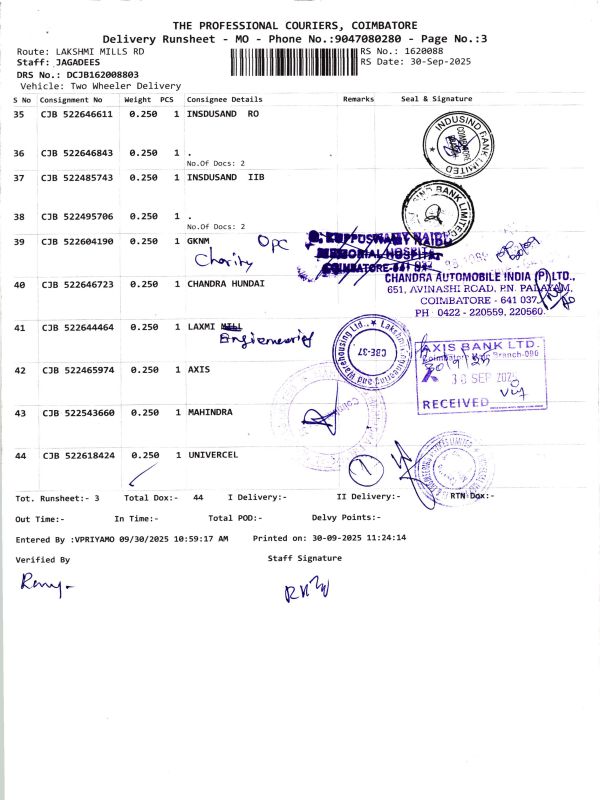 THE PROFESSIONAL COURIERS, COIMBATORE
Delivery Runsheet - MO - Phone No.:9047080280 - Page No.:3
Route: LAKSHMI MILLS RD
RS No.: 1620088
Staff: JAGADEES
RS Date: 30-Sep-2025
DRS No.: DCJB162008803
Vehicle: Two Wheeler Delivery
S No Consignment No Weight PCS Consignee Details Remarks Seal & Signature
35 CJB 522646611 0.250 1 INSDUSAND RO
INDUSIND BANK LIMITED
COIMBATORE
36 CJB 522646843 0.250 1 .
No.Of Docs: 2
37 CJB 522485743 0.250 1 INSDUSAND IIB
BANK LIMITED
38 CJB 522495706 0.250 1 .
No.Of Docs: 2
39 CJB 522604190 0.250 1 GKNM OPC
Charity
G. KUPPUSWAMY NAIDU
MEMORIAL HOSPITAL
COIMBATORE-641 037
40 CJB 522646723 0.250 1 CHANDRA HUNDAI
CHANDRA AUTOMOBILE INDIA (P) LTD.,
651, AVINASHI ROAD, P.N. PALAYAM,
COIMBATORE - 641 037.
PH : 0422 - 220559, 220560
41 CJB 522644464 0.250 1 LAXMI MILL
Engineering
Lakshmi Engineering and Warehousing Ltd.,
CBE-37
42 CJB 522465974 0.250 1 AXIS
AXIS BANK LTD.
Coimbatore Main Branch-090
30/9/25
30 SEP 2025
RECEIVED
43 CJB 522543660 0.250 1 MAHINDRA
44 CJB 522618424 0.250 1 UNIVERCEL
1
Tot. Runsheet:- 3 Total Dox:- 44 I Delivery:- II Delivery:- RTN Dox:-
Out Time:- In Time:- Total POD:- Delvy Points:-
Entered By :VPRIYAMO 09/30/2025 10:59:17 AM Printed on: 30-09-2025 11:24:14
Verified By Staff Signature